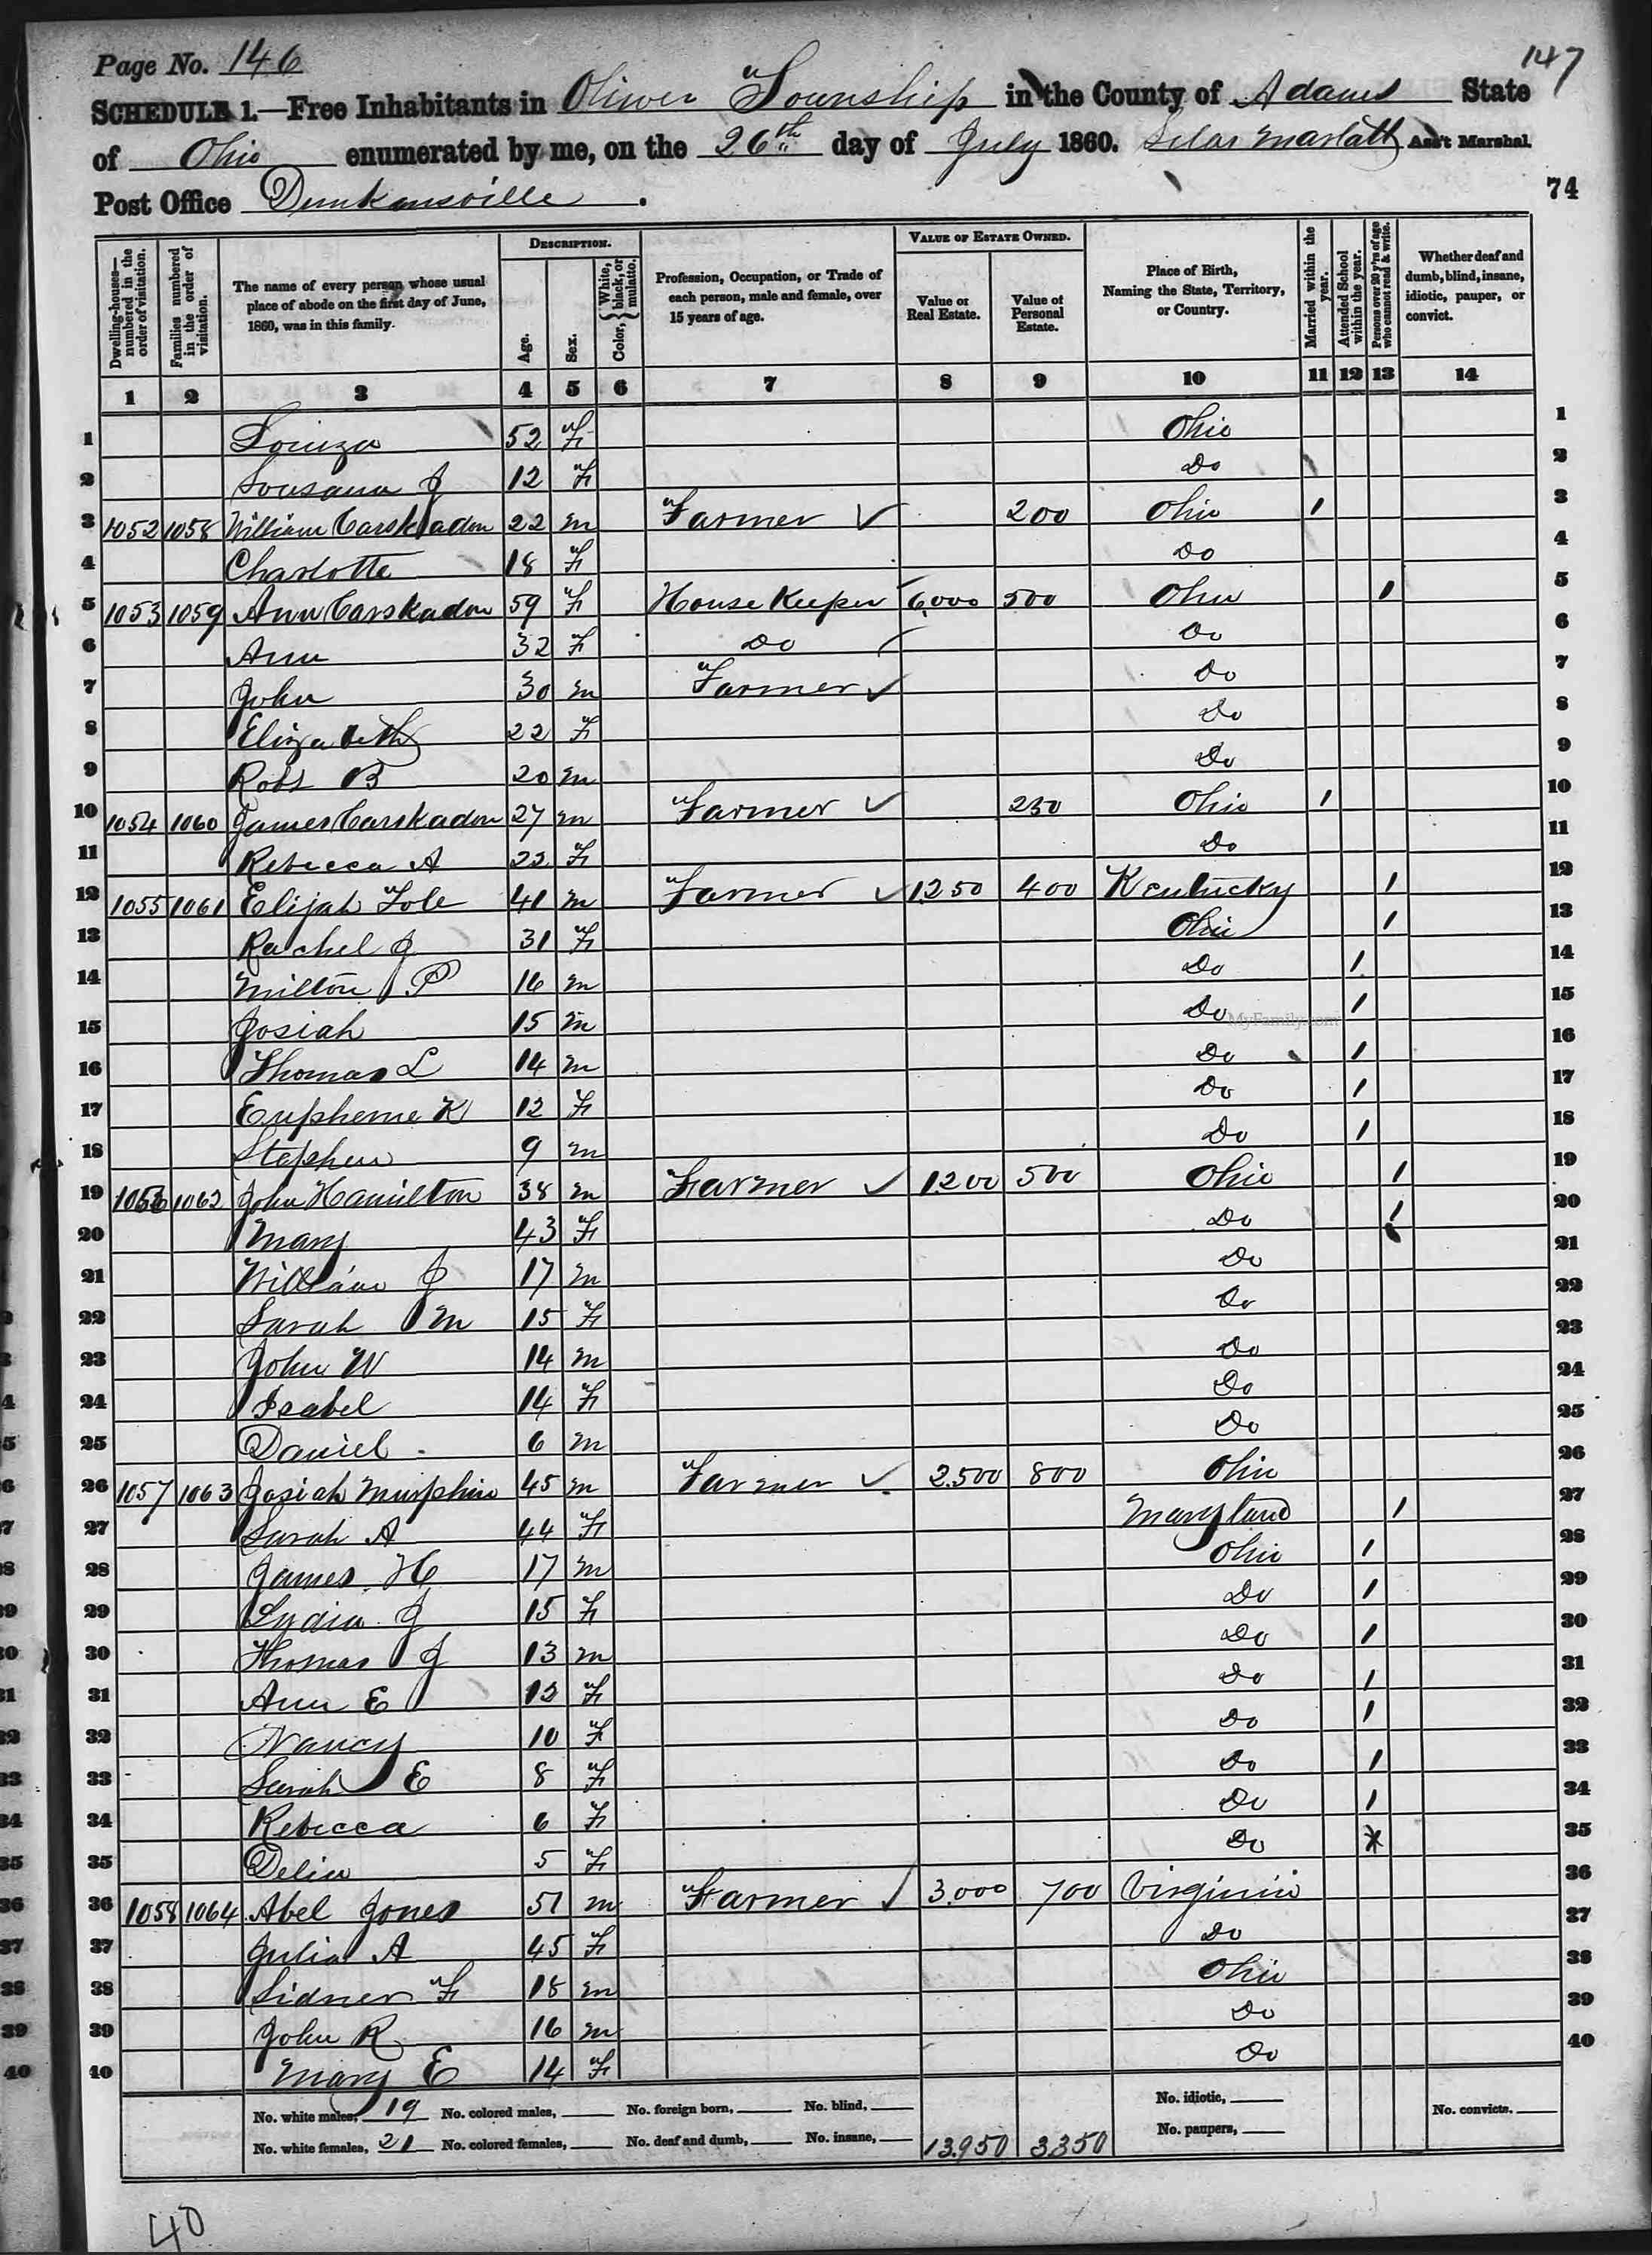 Page No. 146
147
SCHEDULE 1.—Free Inhabitants in Oliver Township in the County of Adams State
of Ohio enumerated by me, on the 26th day of July 1860. Silas Marlatt Ass't Marshal.
Post Office Dunkansville .
74
DESCRIPTION. VALUE OF ESTATE OWNED.
Dwelling-houses—numbered in the order of visitation. Families numbered in the order of visitation. The name of every person whose usual place of abode on the first day of June, 1860, was in this family. Age. Sex. Color, {White, black, or mulatto. Profession, Occupation, or Trade of each person, male and female, over 15 years of age. Value of Real Estate. Value of Personal Estate. Place of Birth, Naming the State, Territory, or Country. Married within the year. Attended School within the year. Persons over 20 y'rs of age who cannot read & write. Whether deaf and dumb, blind, insane, idiotic, pauper, or convict.
1 2 3 4 5 6 7 8 9 10 11 12 13 14
1 Louiza 52 F Ohio 1
2 Sousana J 12 F Do 2
3 1052 1058 William Carskadon 22 m Farmer ✓ 200 Ohio / 3
4 Charlotte 18 F Do 4
5 1053 1059 Ann Carskadon 59 F House Keeper 6,000 500 Ohio / 5
6 Ann 32 F Do Do 6
7 John 30 m Farmer ✓ Do 7
8 Elizabeth 22 F Do 8
9 Robt B 20 m Do 9
10 1054 1060 James Carskadon 27 m Farmer ✓ 250 Ohio / 10
11 Rebecca A 22 F Do 11
12 1055 1061 Elijah Tole 41 m Farmer ✓ 1250 400 Kentucky / 12
13 Rachel J 31 F Ohio / 13
14 Milton P 16 m Do / 14
15 Josiah 15 m Do / 15
MyFamily.com
16 Thomas L 14 m Do / 16
17 Eupheme K 12 F Do / 17
18 Stephen 9 m Do / 18
19 1056 1062 John Hamilton 38 m Farmer ✓ 1200 500 Ohio / 19
20 Mary 43 F Do / 20
21 William J 17 m Do 21
22 Sarah M 15 F Do 22
23 John W 14 m Do 23
24 Isabel 14 F Do 24
25 Daniel 6 m Do 25
26 1057 1063 Josiah Murphin 45 m Farmer ✓ 2.500 800 Ohio 26
27 Sarah A 44 F Maryland / 27
28 James H 17 m Ohio / 28
29 Lydia J 15 F Do / 29
30 Thomas J 13 m Do / 30
31 Ann E 12 F Do / 31
32 Nancy 10 F Do / 32
33 Sarah E 8 F Do / 33
34 Rebecca 6 F Do / 34
35 Delia 5 F Do * 35
36 1058 1064 Abel Jones 51 m Farmer ✓ 3.000 700 Virginia 36
37 Julia A 45 F Do 37
38 Sidner F 18 m Ohio 38
39 John R 16 m Do 39
40 Mary E 14 F Do 40
No. white males, 19 No. colored males, No. foreign born, No. blind, No. idiotic, No. convicts.
No. white females, 21 No. colored females, No. deaf and dumb, No. insane, 13.950 3350 No. paupers,
40